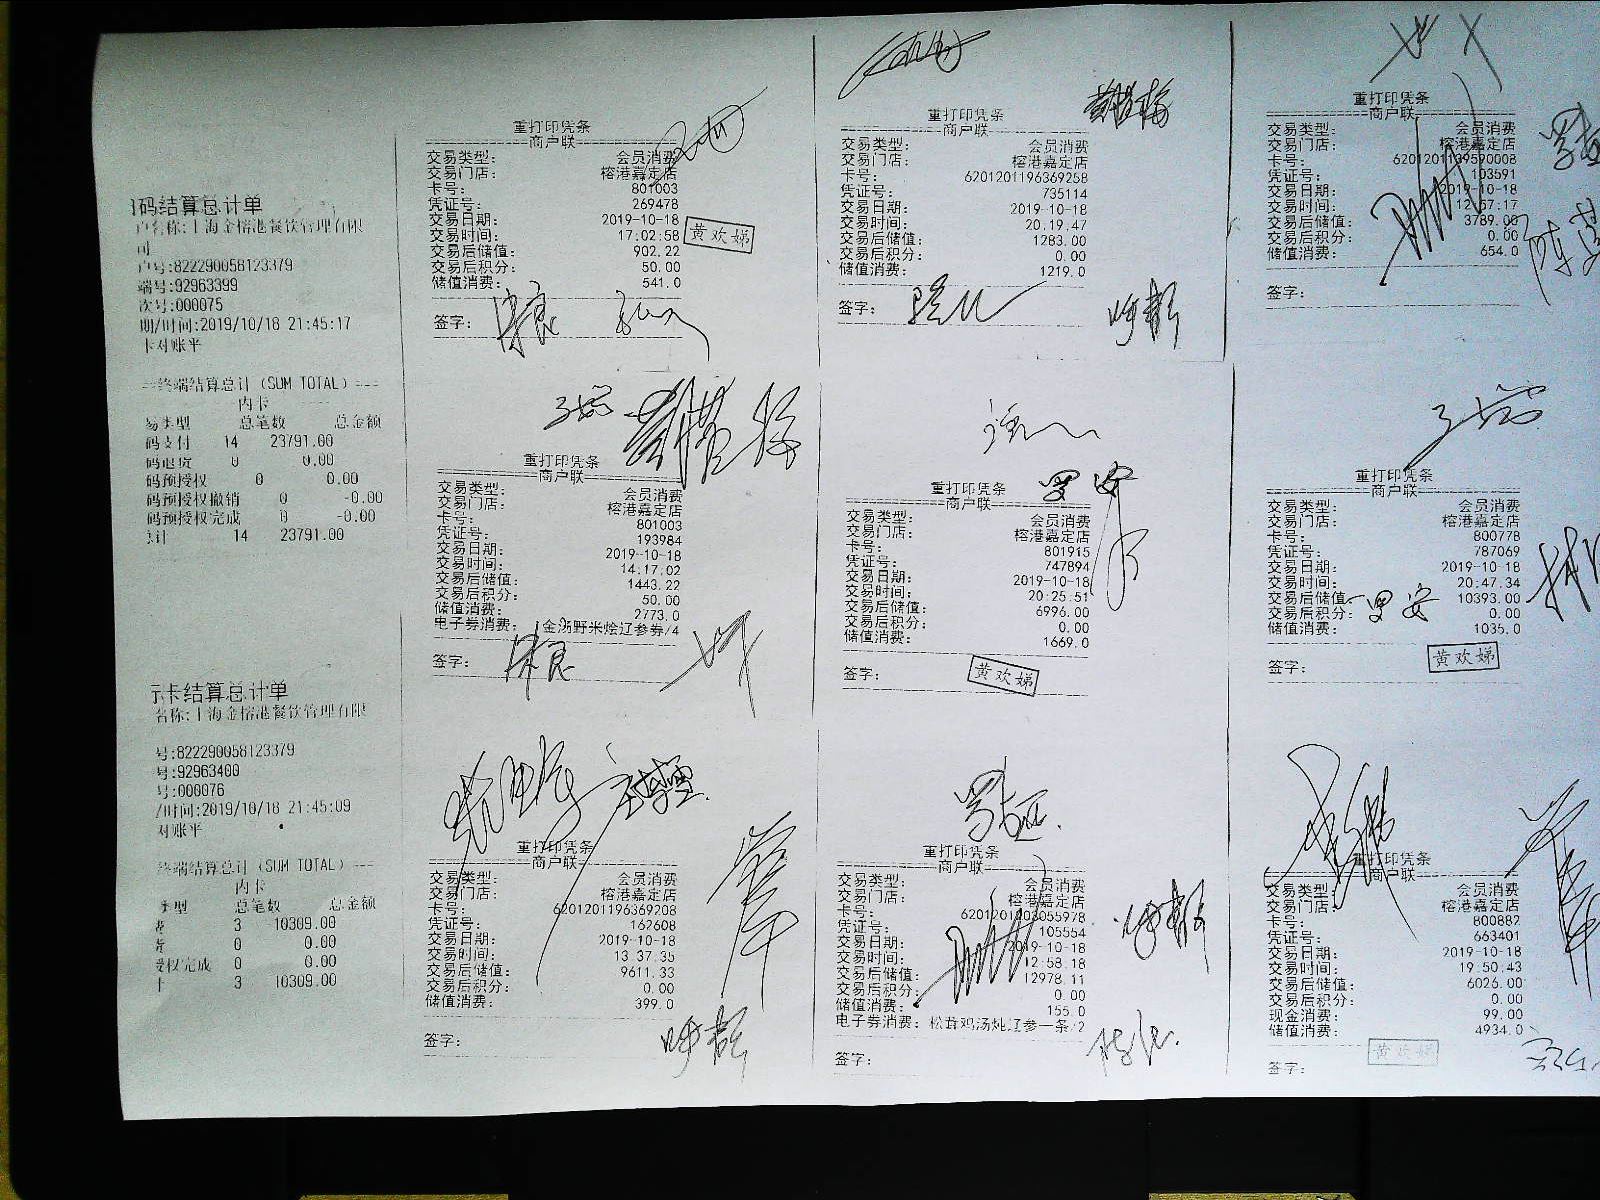 码结算总计单
户名称:上海金榕港餐饮管理有限
司
户号:822290058123379
端号:92963399
次号:000075
期/时间:2019/10/18 21:45:17
卡对账平
终端结算总计(SUM TOTAL)
内卡
易类型 总笔数 总金额
码支付 14 23791.00
码退货 0 0.00
码预授权 0 0.00
码预授权撤销 0 -0.00
码预授权完成 0 -0.00
总计 14 23791.00
示卡结算总计单
名称:上海金榕港餐饮管理有限
号:822290058123379
号:92963400
号:000076
/时间:2019/10/18 21:45:09
对账平
终端结算总计(SUM TOTAL)
内卡
类型 总笔数 总金额
3 10309.00
0 0.00
授权完成 0 0.00
3 10309.00
重打印凭条
商户联
交易类型: 会员消费
交易门店: 榕港嘉定店
卡号: 801003
凭证号: 269478
交易日期: 2019-10-18
交易时间: 17:02:58
交易后储值: 902.22
交易后积分: 50.00
储值消费: 541.0
黄欢娣
签字:
重打印凭条
商户联
交易类型: 会员消费
交易门店: 榕港嘉定店
卡号: 6201201196369258
凭证号: 735114
交易日期: 2019-10-18
交易时间: 20:19:47
交易后储值: 1283.00
交易后积分: 0.00
储值消费: 1219.0
签字:
重打印凭条
商户联
交易类型: 会员消费
交易门店: 榕港嘉定店
卡号: 6201201139590008
凭证号: 103591
交易日期: 2019-10-18
交易时间: 12:57:17
交易后储值: 3789.00
交易后积分: 0.00
储值消费: 654.0
签字:
重打印凭条
商户联
交易类型: 会员消费
交易门店: 榕港嘉定店
卡号: 801003
凭证号: 193984
交易日期: 2019-10-18
交易时间: 14:17:02
交易后储值: 1443.22
交易后积分: 50.00
储值消费: 2773.0
电子券消费: 金汤野米烩辽参券/4
签字:
重打印凭条
商户联
交易类型: 会员消费
交易门店: 榕港嘉定店
卡号: 801915
凭证号: 747894
交易日期: 2019-10-18
交易时间: 20:25:51
交易后储值: 6996.00
交易后积分: 0.00
储值消费: 1669.0
签字:
黄欢娣
重打印凭条
商户联
交易类型: 会员消费
交易门店: 榕港嘉定店
卡号: 800778
凭证号: 787069
交易日期: 2019-10-18
交易时间: 20:47:34
交易后储值 10393.00
交易后积分: 0.00
储值消费: 1035.0
黄欢娣
签字:
重打印凭条
商户联
交易类型: 会员消费
交易门店: 榕港嘉定店
卡号: 6201201196369208
凭证号: 162608
交易日期: 2019-10-18
交易时间: 13:37:35
交易后储值: 9611.33
交易后积分: 0.00
储值消费: 399.0
签字:
重打印凭条
商户联
交易类型: 会员消费
交易门店: 榕港嘉定店
卡号: 6201201003055978
凭证号: 105554
交易日期: 2019-10-18
交易时间: 12:58:18
交易后储值: 12978.11
交易后积分: 0.00
储值消费: 155.0
电子券消费: 松茸鸡汤炖辽参一条/2
签字:
重打印凭条
商户联
交易类型: 会员消费
交易门店: 榕港嘉定店
卡号: 800882
凭证号: 663401
交易日期: 2019-10-18
交易时间: 19:50:43
交易后储值: 6026.00
交易后积分: 0.00
现金消费: 99.00
储值消费: 4934.0
黄欢娣
签字: